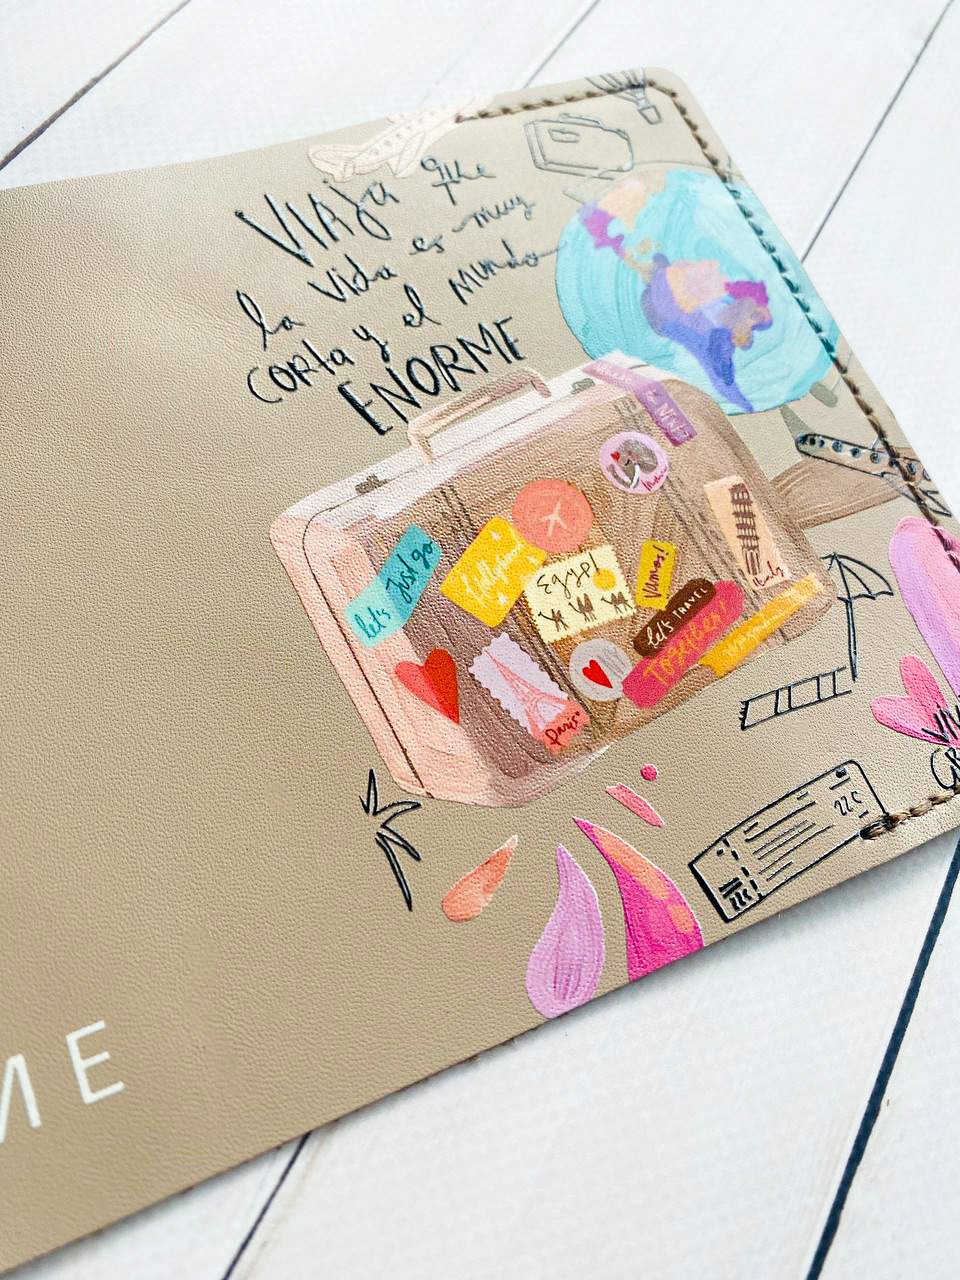 VIAJA que
la vida es muy
corta y el mundo
ENORME
let's Just go
Hollywood
Egypt
Vamos!
let's TRAVEL
TOGETHER!
Paris
Italy
225
225
ME